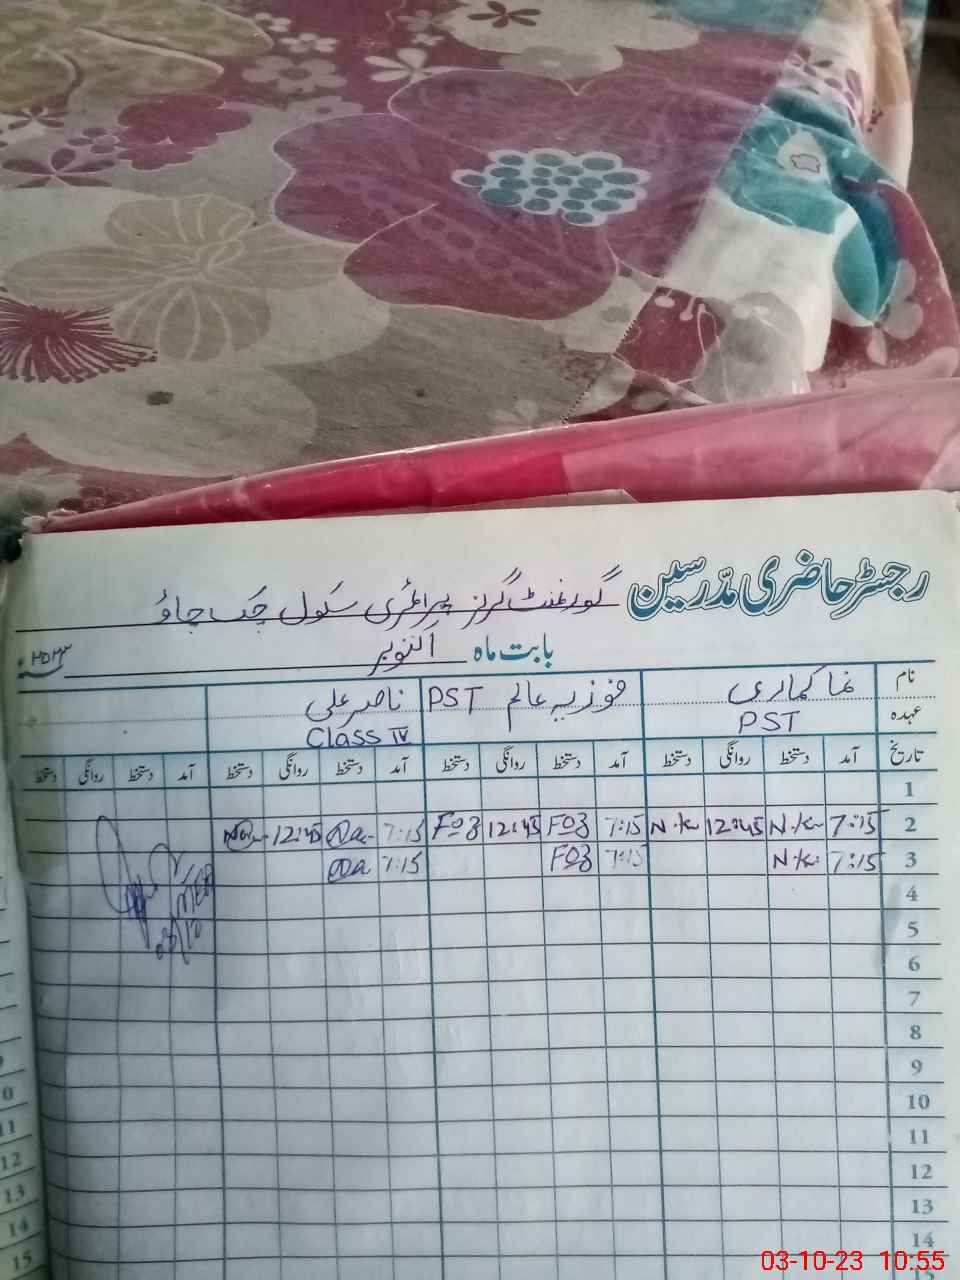 رجسٹر حاضری مدرسین گورنمنٹ گرلز پرائمری سکول چک جاؤ
بابت ماہ اکتوبر ۲۰۲۳ء
نام نما کماری فوزیہ عالم PST ناصر علی
عہدہ PST Class IV
تاریخ آمد دستخط روانگی دستخط آمد دستخط روانگی دستخط آمد دستخط روانگی دستخط آمد دستخط روانگی دستخط
1
2 7:15 N.K 12:45 N.K 7:15 FOZ 12:45 FOZ 7:15 12:45
3 7:15 N.K 7:15 FOZ 7:15
4
5
6
7
8
9
10
11
12
13
14
03/10
11
12
13
14
15
03-10-23 10:55